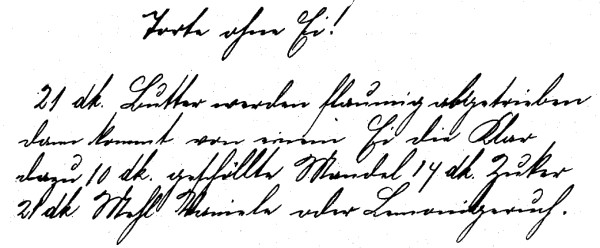 Torte ohne Ei!
21 dk. Butter werden flaumig abgetrieben
dann kommt von einem Ei die Klar
dazu, 10 dk. geschöllte Mandel 14 dk. Zuker
21 dk Mehl Vaniele oder Lemonigeruch.